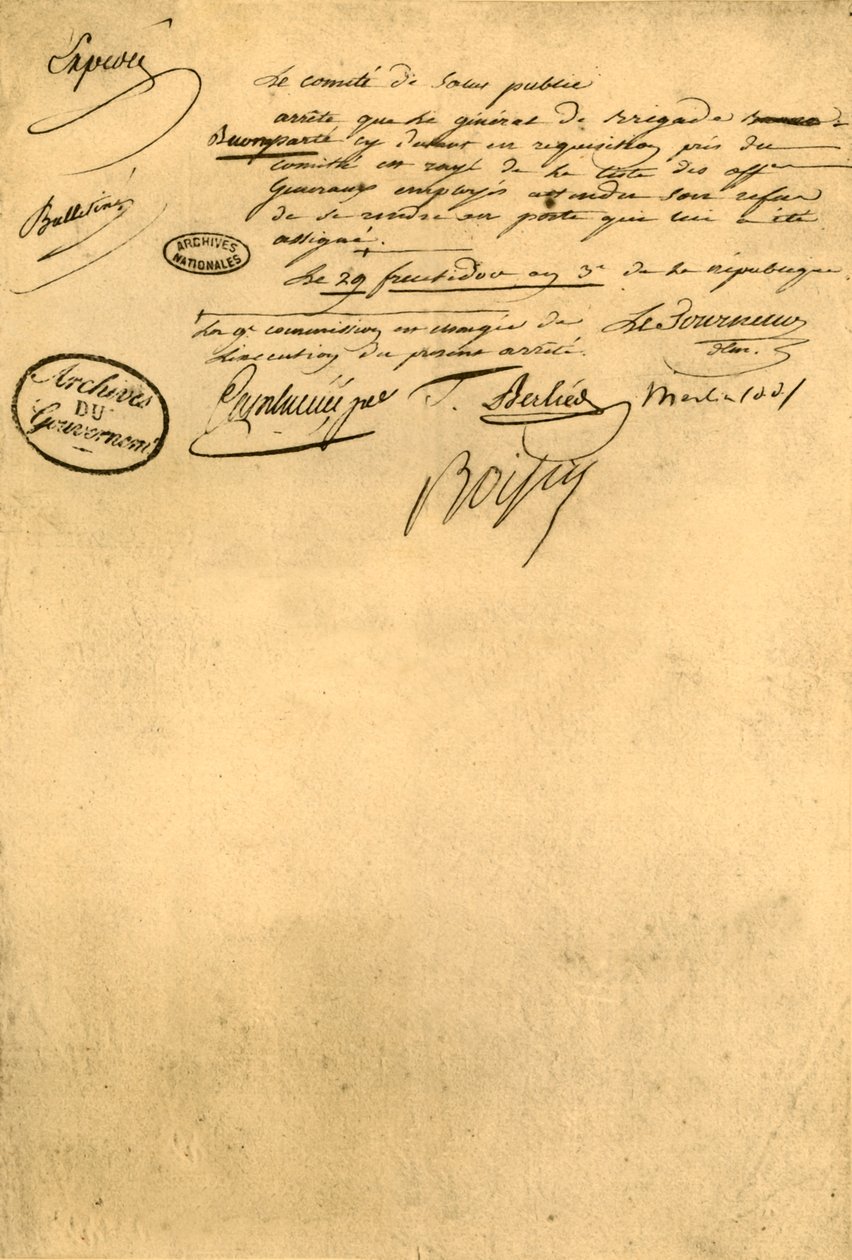 Expédié
Le comité de Salus public
arrête que Le général de Brigade
Buonparté cy devant en requisition près du
Comité est rayé de La Liste des off.
Generaux employés attendu son refus
de se rendre au poste qui lui a été
assigné.
Bulletiné
ARCHIVES
NATIONALES
Le 29 fructidor an 3e de La République
La 9e commission est chargée de
L'execution du present arrêté.
Le Tourneur
Archives
DU
Gouvernemt
Cambacérès T. Berlier Merlin
Boissy